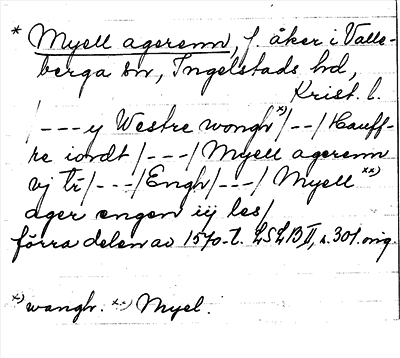 * Myell agerenn, f. åker i Valle-
berga sn, Ingelstads hd,
Krist. l.
/---y Westre wongh x)/--/Hauff-
re iordt/---/Myell agerenn
vj tr/---/Engh/---/Myell xx)
ager engen iij les/
förra delen av 1570-t. LSLB II, s. 301. orig.
x) wangh. xx) Myel.